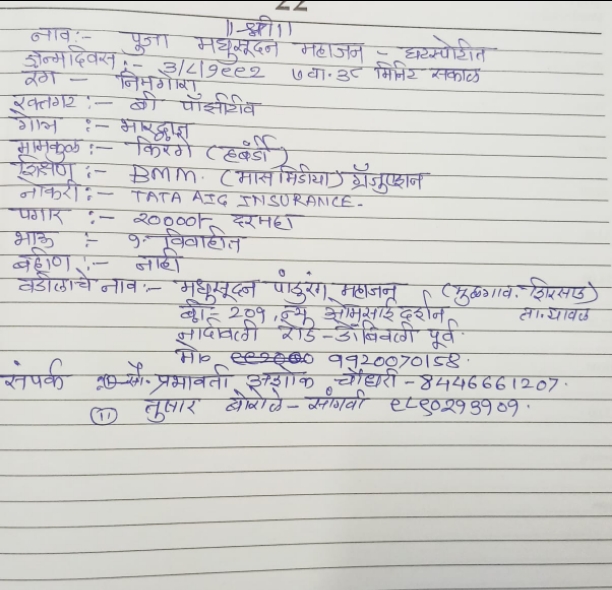 22
॥श्री॥
नाव:- पुजा मधुसूदन महाजन - घटस्पोटीत
जन्मदिवस:- ३/८/१९९२ ७ वा. ३८ मिनिट सकाळ
रंग - निमगोरा
रक्तगट:- बी पॉझीटीव
गोत्र :- भारद्वाज
मामकुळ:- किरंगे (हंबर्डी)
शिक्षण:- BMM. (मास मिडीया) ग्रॅजुएशन
नोकरी:- TATA AIG INSURANCE.
पगार :- २००००/- दरमहा
भाऊ :- १. विवाहीत
बहीण :- नाही
वडीलाचे नाव:- मधुसूदन पांडुरंग महाजन (मुळगाव. शिरसाड
बी- 209, न्यु ओमसाई दर्शन ता. यावल
नांदिवली रोड - डोंबिवली पूर्व.
मो० 9920070158.
संपर्क सौ. प्रभावती अशोक चौधरी - 8446661207.
(11) तुषार बोरोले - सांगवी ९८९०२९३९०९.